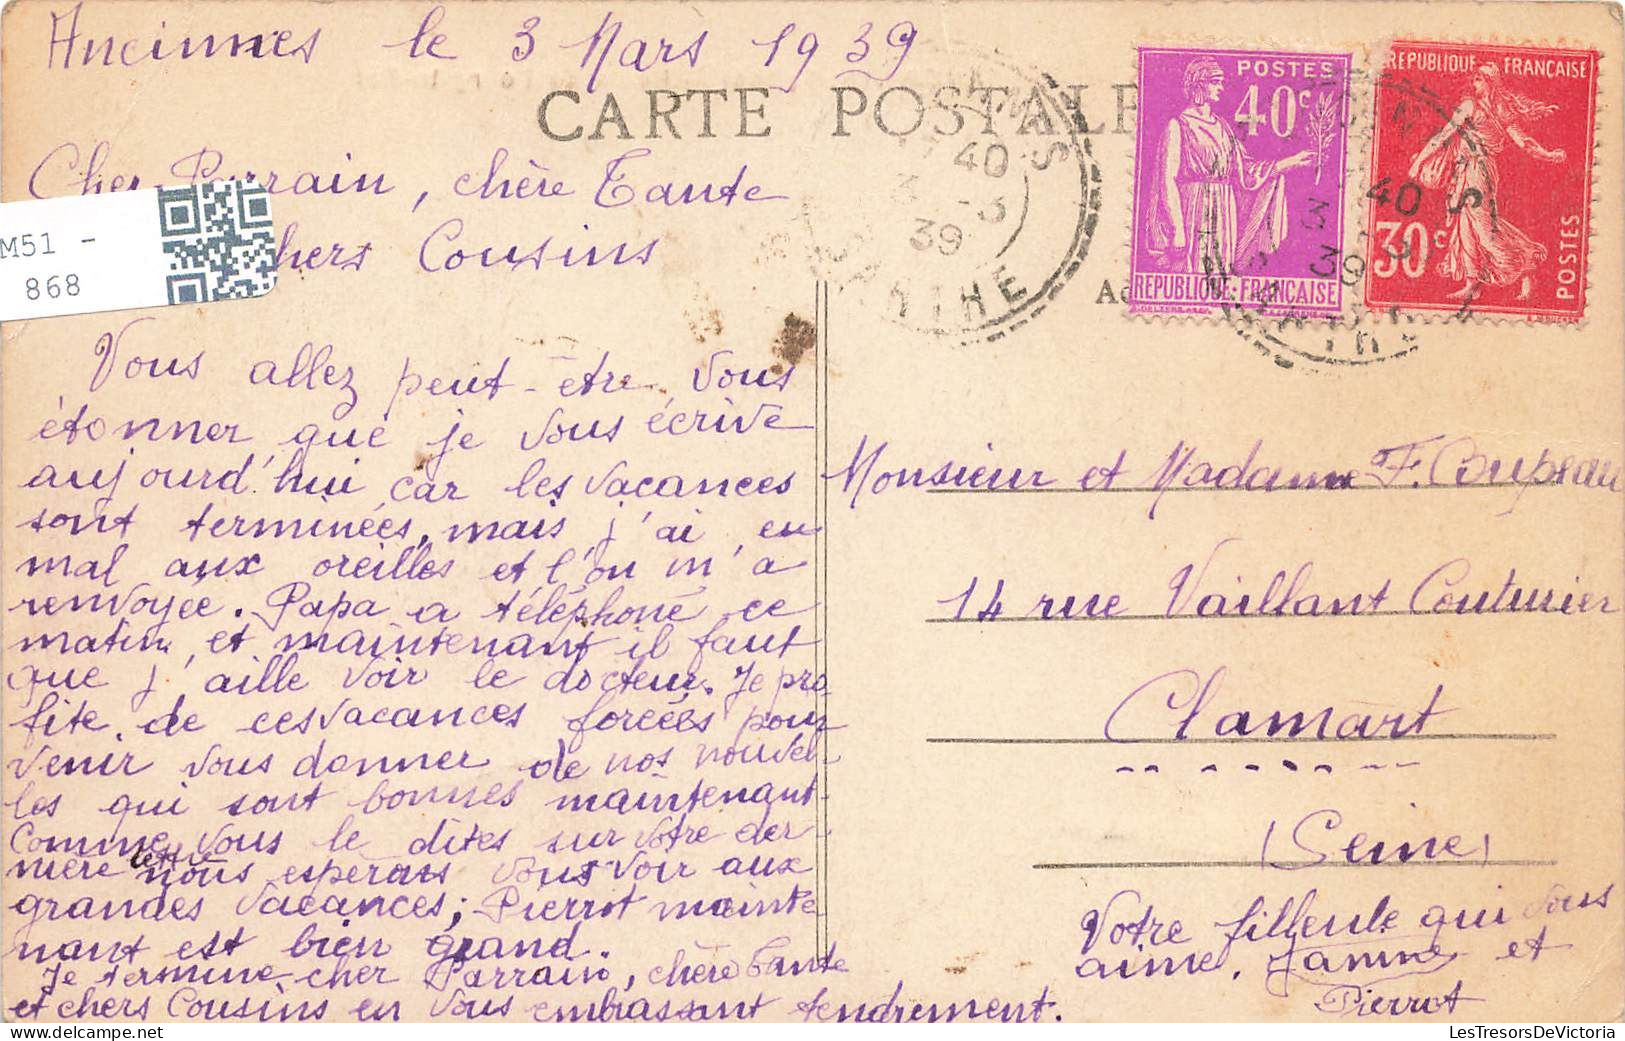 Ancinnes le 3 Mars 1939
CARTE POSTALE
POSTES
40c
REPUBLIQUE FRANÇAISE
REPUBLIQUE FRANÇAISE
30c
POSTES
40
3 -3
39
SARTHE
40
3 -3
39
M51 -
868
Cher Parrain, chère Tante
chers Cousins
Vous allez peut-être vous
étonner que je vous écrive
aujourd'hui car les vacances
sont terminées, mais j'ai eu
mal aux oreilles et l'on m'a
renvoyée. Papa a téléphoné ce
matin, et maintenant il faut
que j'aille voir le docteur. Je pro
fite de ces vacances forcées pour
venir vous donner de nos nouvel-
les qui sont bonnes maintenant.
Comme vous le dites sur votre der-
nière lettre nous espérons vous voir aux
grandes vacances; Pierrot mainte
nant est bien grand.
Je termine cher Parrain, chère Tante
et chers Cousins en vous embrassant tendrement.
Monsieur et Madame F. Coupeau
14 rue Vaillant Couturier
Clamart
(Seine)
Votre filleule qui vous
aime. Janine et
Pierrot
LesTresorsDeVictoria